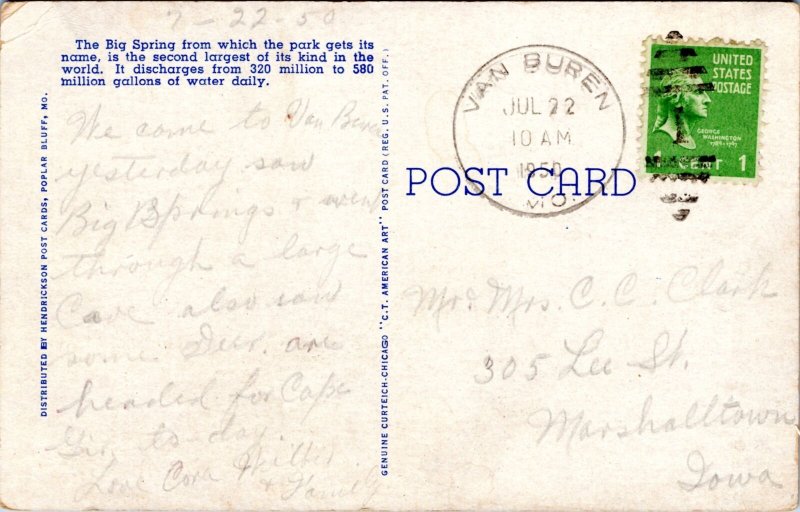 7-22-50
The Big Spring from which the park gets its
name, is the second largest of its kind in the
world. It discharges from 320 million to 580
million gallons of water daily.
We came to Van Buren
yesterday saw
Big Springs & went
through a large
Cave also saw
some Deer. are
headed for Cape
Gir. to day.
Love Cora
& Family
DISTRIBUTED BY HENDRICKSON POST CARDS, POPLAR BLUFF, MO.
GENUINE CURTEICH-CHICAGO "C.T. AMERICAN ART" POST CARD (REG. U.S. PAT. OFF.)
VAN BUREN
JUL 22
10 AM
1950
MO.
UNITED
STATES
POSTAGE
GEORGE
WASHINGTON
1789-1797
1 CENT 1
POST CARD
Mr. Mrs. C. C. Clark
305 Lee St.
Marshalltown
Iowa